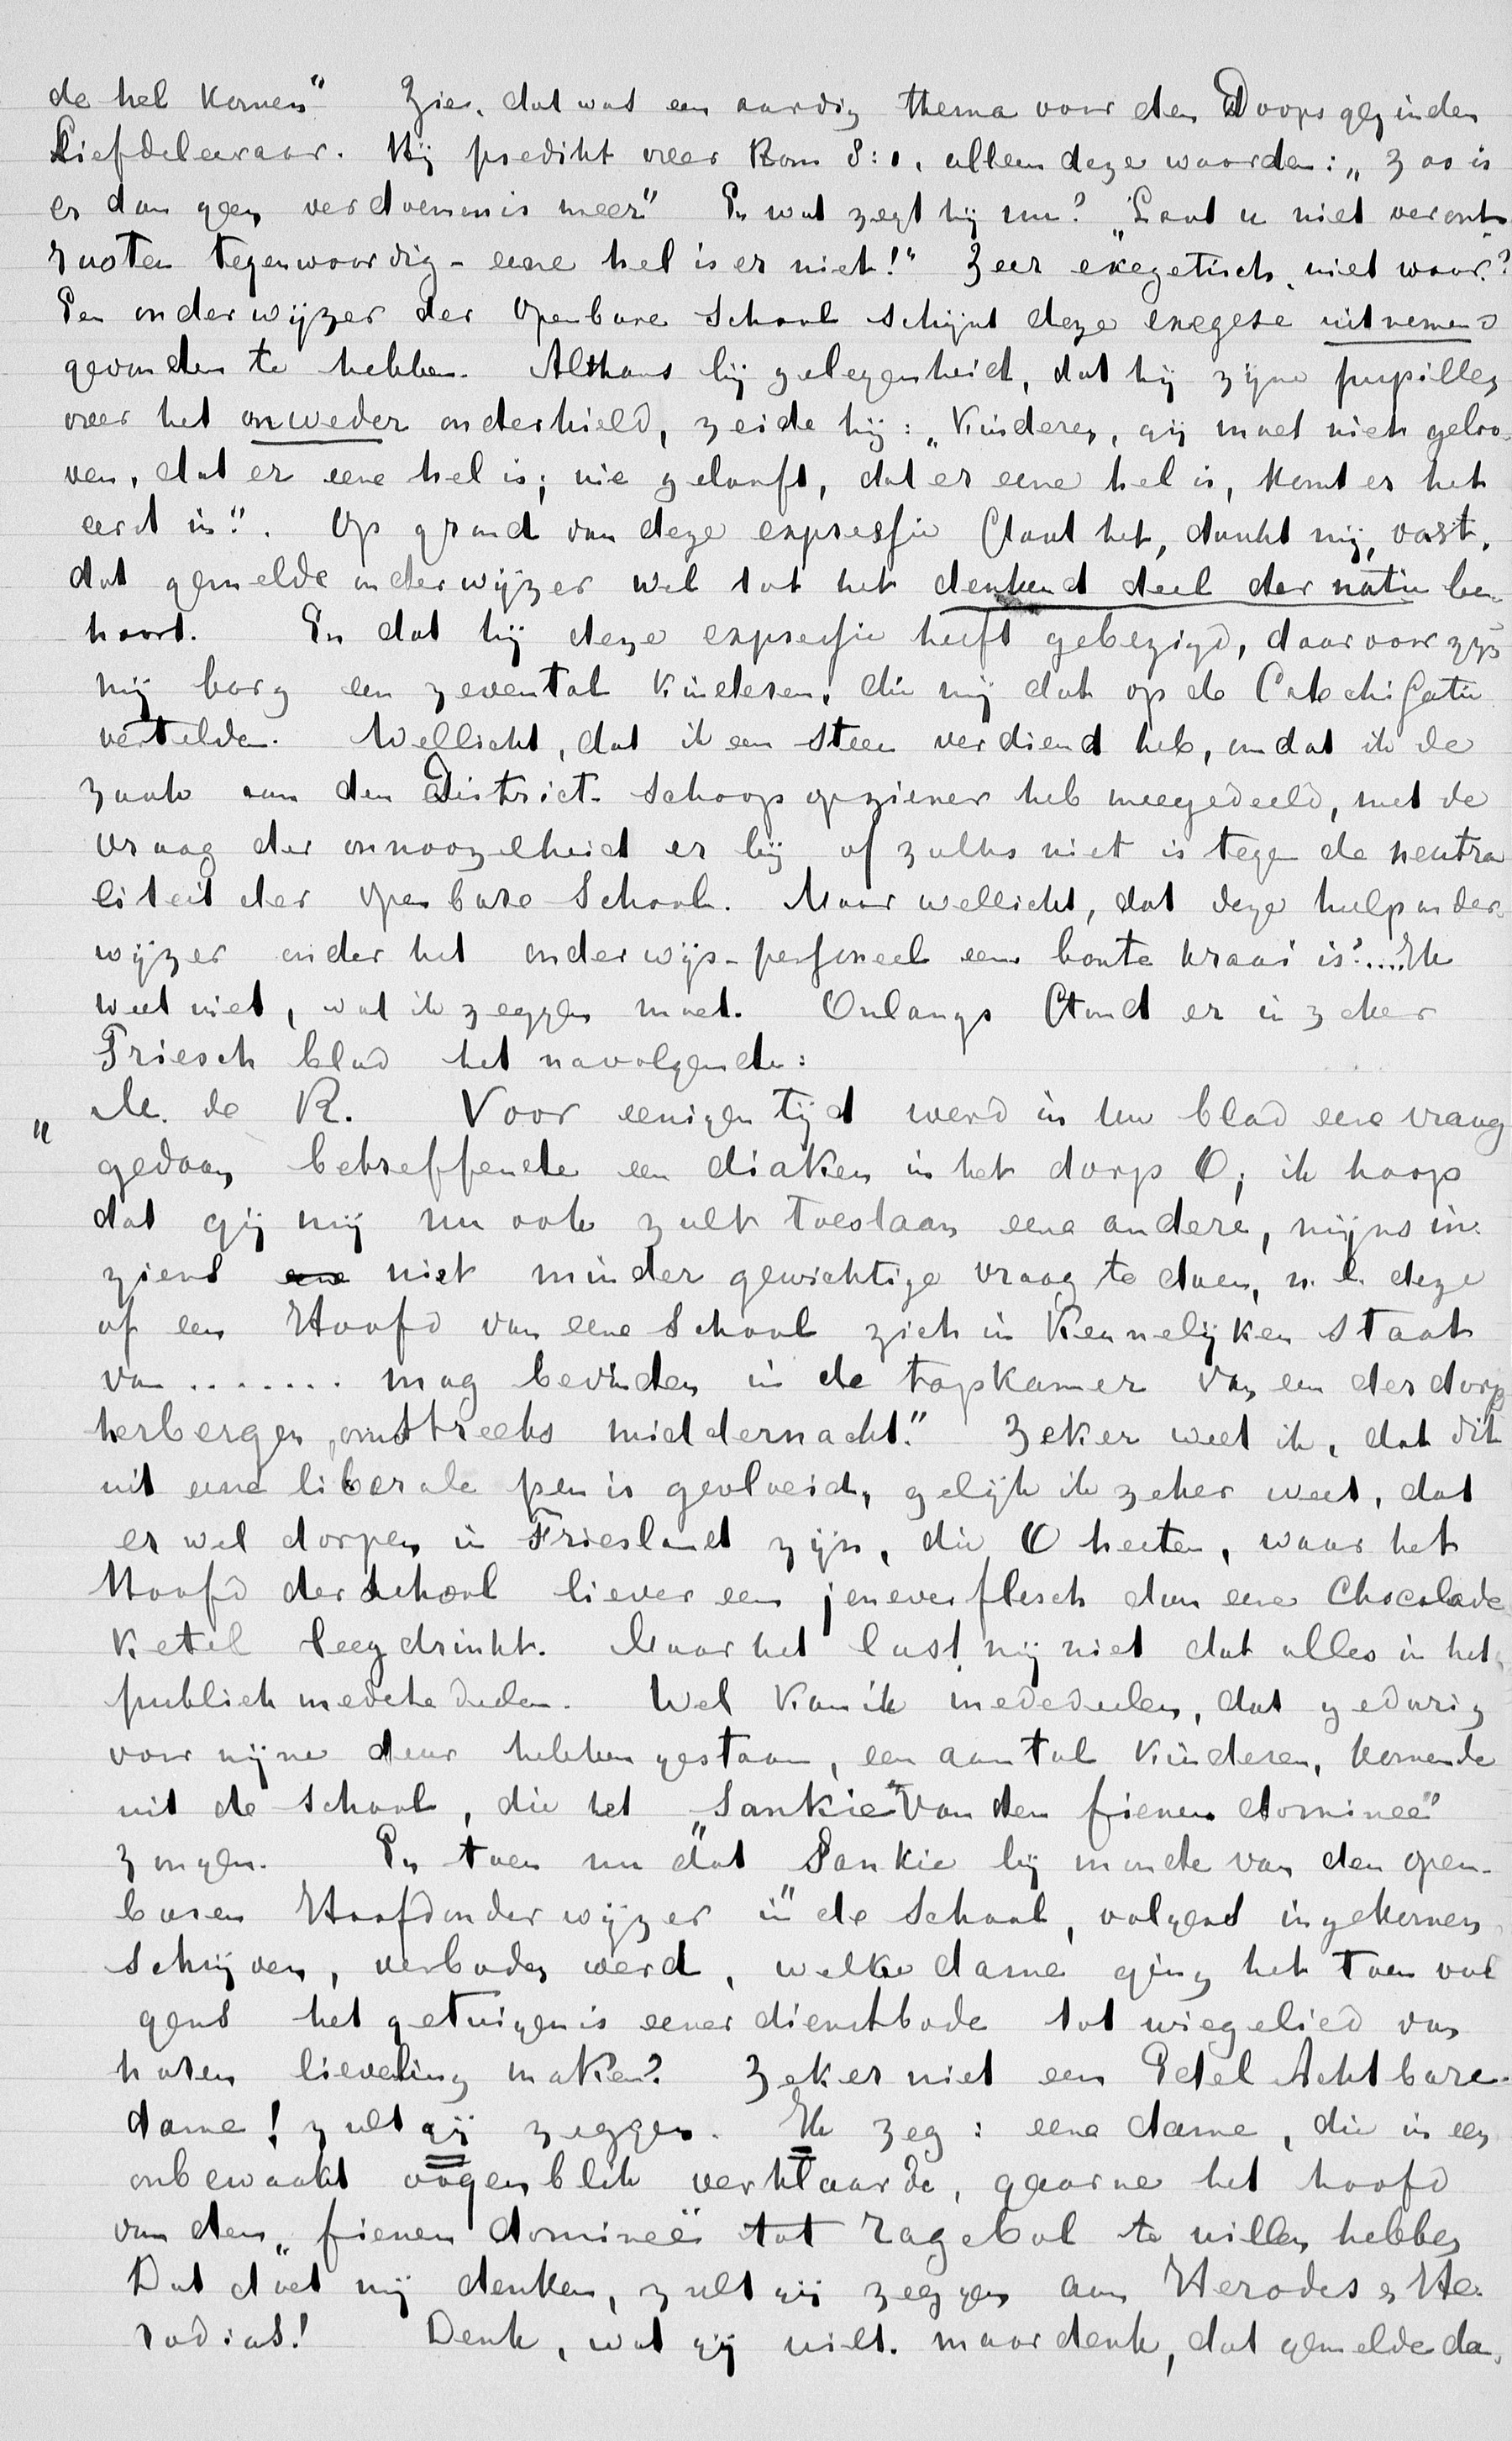 de hel komen" Zie, dat was een aardig thema voor den Doopsgezinden
Liefdeleeraar. Hij predikt over Rom 8:1, alleen deze woorden: „Zoo is
er dan geen verdoemenis meer" En wat zegt hij nu? „Laat u niet veront-
rusten tegenwoordig - eene hel is er niet!" Zeer exegetisch, niet waar?
Een onderwijzer der Openbare School schijnt deze exegese uitnemend
gevonden te hebben. Althans bij gelegenheid, dat hij zijne pupillen
over het onweder onderhield, zeide hij: „Kinderen, gij moet niet geloo-
ven, dat er eene hel is; wie gelooft, dat er eene hel is, komt er het
eerst in". Op grond van deze expressie staat het, dunkt mij, vast,
dat gemelde onderwijzer wel tot het denkend deel der natie be-
hoort. En dat hij deze expressie heeft gebezigd, daarvoor zijn
mij borg een zevental kinderen, die mij dat op de Catechisatie
vertelden. Wellicht, dat ik een steen verdiend heb, omdat ik de
zaak aan den District-schoolopziener heb meegedeeld, met de
vraag der onnoozelheid er bij of zulks niet is tegen de neutra
liteit der openbare School. Maar wellicht, dat deze hulponder-
wijzer onder het onderwijs-personeel een bonte kraai is?.... Ik
weet niet, wat ik zeggen moet. Onlangs stond er in zeker
Friesch blad het navolgende:
„M. de R. Voor eenigen tijd werd in Uw blad eene vraag
gedaan betreffende een diaken in het dorp O; ik hoop
dat gij mij nu ook zult toestaan eene andere, mijns in-
ziens ene niet minder gewichtige vraag te doen, n.l. deze
of een Hoofd van eene School zich in Kennelijken staat
van ........ mag bevinden in de tapkamer van een der dorp
herbergen, omstreeks middernacht." Zeker weet ik, dat dit
uit eene liberale pen is gevloeid, gelijk ik zeker weet, dat
er wel dorpen in Friesland zijn, die O heeten, waar het
Hoofd der School liever een jeneverflesch dan eene Chocolade
Ketel leegdrinkt. Maar het lust mij niet dat alles in het
publiek mede te deelen. Wel kan ik mededeelen, dat gedurig
voor mijne deur hebben gestaan, een aantal kinderen, komende
uit de School, die het „Sankie" van den fienen dominee"
zongen. En toen nu dat Sankie bij monde van den open-
baren Hoofdonderwijzer in de School, volgens ingekomen
schrijven, verboden werd, welke dame ging het toen vol
gens het getuigenis eener dienstbode tot wiegelied van
haren lieveling maken? Zeker niet een Edel Achtbare
dame! zult gij zeggen. Ik zeg: eene dame, die in een
onbewaakt oogenblik verklaarde, gaarne het hoofd
van den „fienen dominee" tot ragebol te willen hebben
Dat doet mij denken, zult gij zeggen aan Herodes & He-
rodias! Denk, wat gij wilt. maar denk, dat gemelde da-